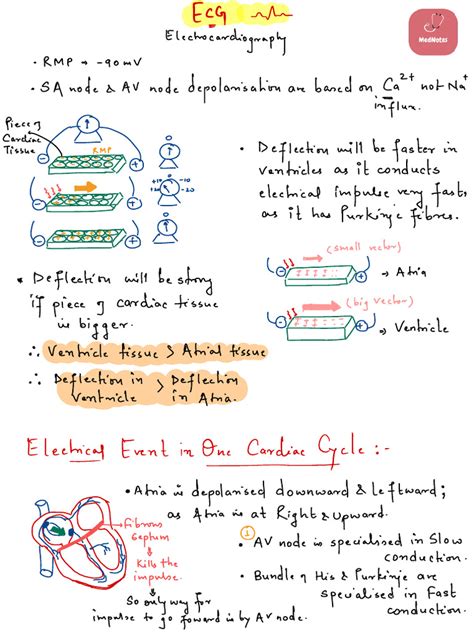 ECG
MedNotes
Electrocardiography
· RMP → -90mV
· SA node & AV node depolarisation are based on Ca2+ not Na+
influx.
Piece of
Cardiac
Tissue
RMP
0
0
+10 -10
+20 -20
0
· Deflection will be faster in
ventricles as it conducts
electrical impulse very fastly
as it has Purkinje fibres.
(small vector)
→ Atria
(big vector)
→ Ventricle
· Deflection will be strong
if piece of cardiac tissue
is bigger.
∴ Ventricle tissue > Atrial tissue
∴ Deflection in > Deflection
ventricle in Atria.
Electrical Event in One Cardiac Cycle :-
· Atria is depolarised downward & leftward;
as Atria is at Right & Upward.
①
· AV node is specialised in Slow
conduction.
· Bundle of His & Purkinje are
specialised in Fast
conduction.
Fibrous
septum
↓
Kills the
impulse.
↓
So only way for
impulse to go foward is by AV node.